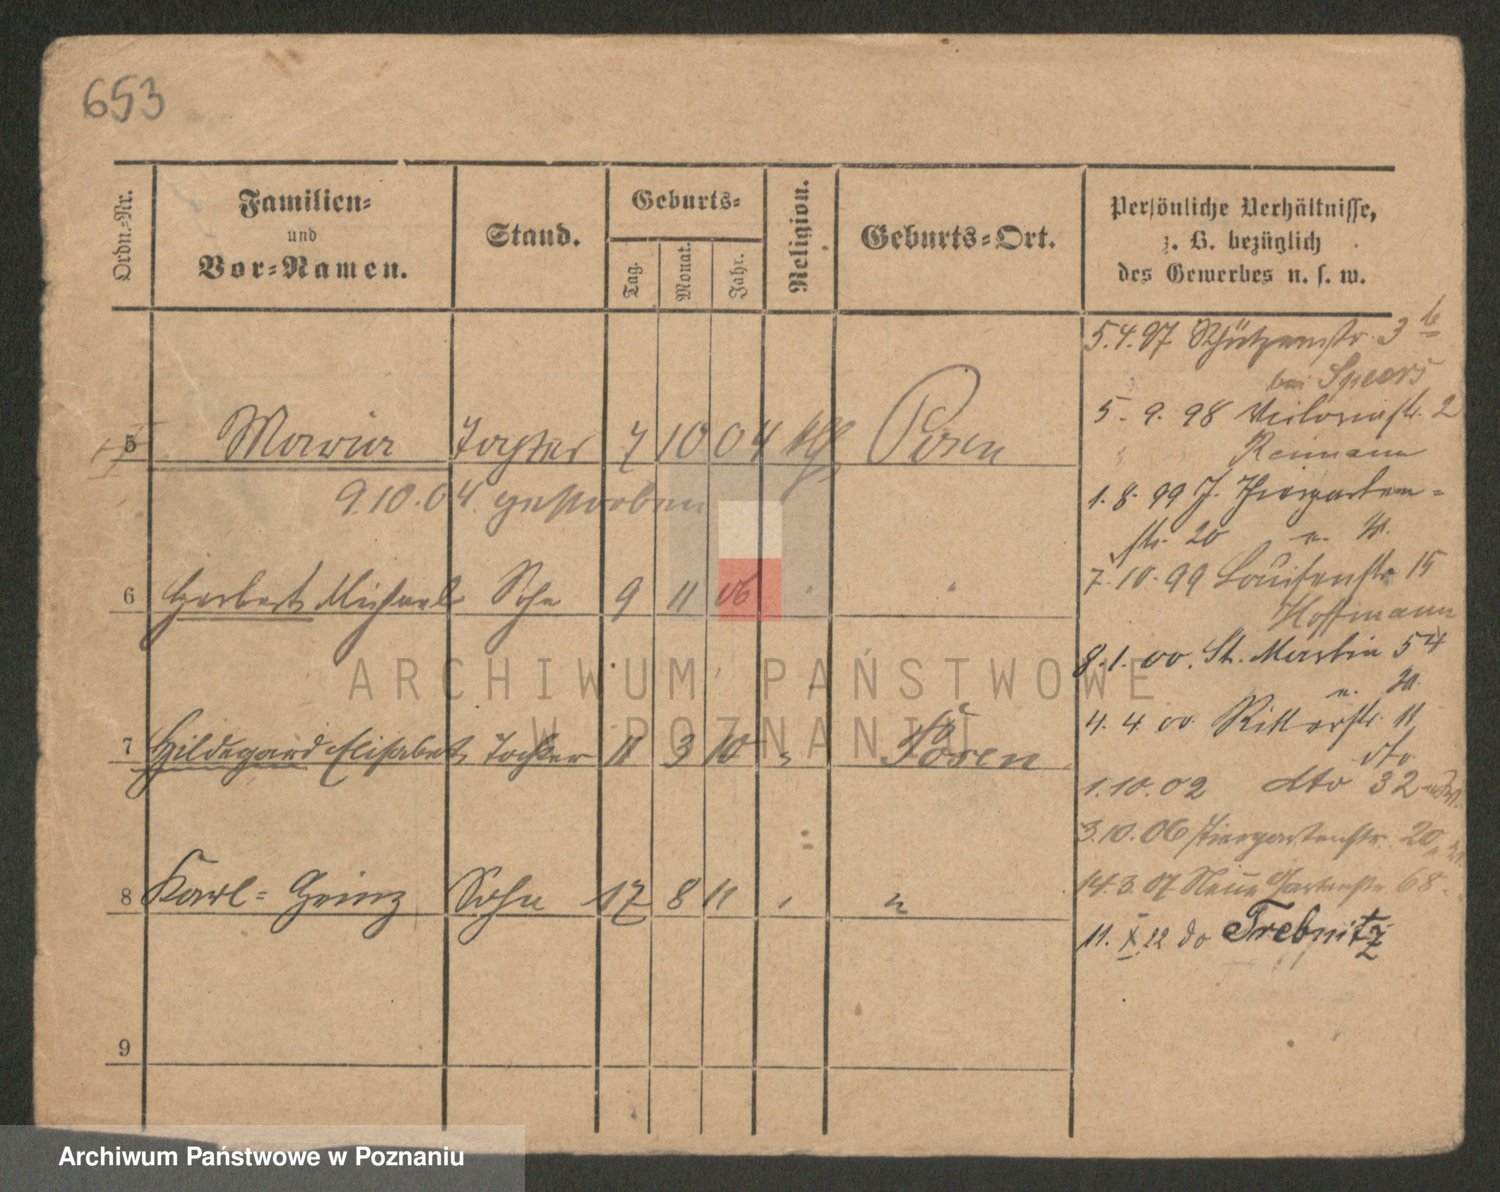 653
Ordn.-Nr.
Familien-
und
Vor-Namen.
Stand.
Geburts-
Tag.
Monat.
Jahr.
Religion.
Geburts-Ort.
Persönliche Verhältnisse,
z. B. bezüglich
des Gewerbes u. s. w.
5 Maria Tochter 7 10 04 kth Posen
9.10.04 gestorben
6 Herbert Michael Sohn 9 11 06 "
7 Hildegard Elisabet Tochter 11 3 10 " Posen
8 Karl-Heinz Sohn 17 8 11 " "
9
5.4.97 Schützenstr. 3 b
bei Speers
5.9.98 Victoriastr. 2
Reimann
1.8.99 J. Thiergarten-
str. 20 u. W.
7.10.99 Louisenstr 15
Hoffmann
8.1.00. St. Martin 54
u. W.
4.4 00 Ritterstr. 11
dto
1.10.02 dto 32
3.10.06 Tiergartenstr. 20
14.3.07 Neue Gartenstr. 68
11. X 22 do Trebnitz
ARCHIWUM PAŃSTWOWE
W POZNANIU
Archiwum Państwowe w Poznaniu